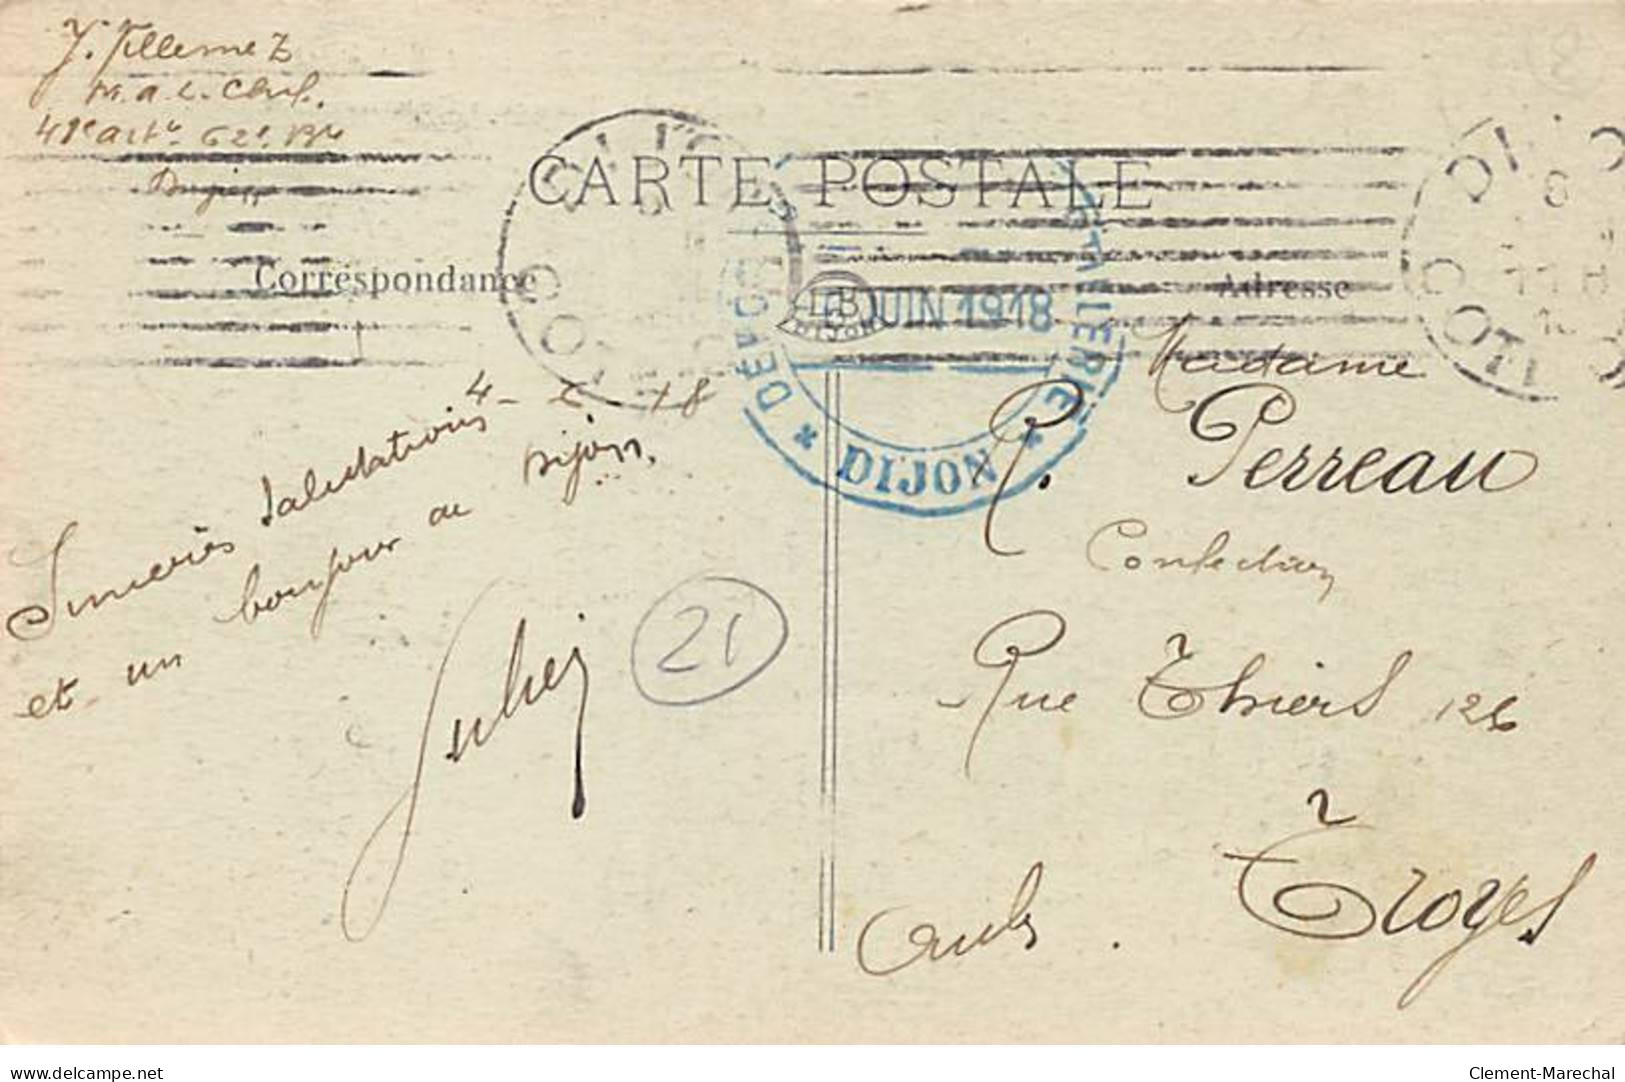 J. Villemez
M. d. L. Chef.
48e artie 62e Bie
Dijon
CARTE POSTALE
Correspondance
Adresse
LB
DIJON
JUIN 1918
* DÉPOT ARTILLERIE *
DIJON
DIJON
COTE D'OR
4 - 6 - 18
Sincères salutations
et un bonjour de Dijon.
21
Madame
R. Perreau
Confection
Rue Thiers 126
Troyes
Aube.
delcampe.net
Clement-Marechal